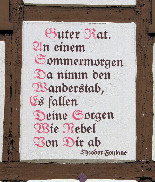 Guter Rat.
An einem
Sommermorgen
Da nimm den
Wanderstab,
Es fallen
Deine Sorgen
Wie Nebel
Von Dir ab
Theodor Fontane